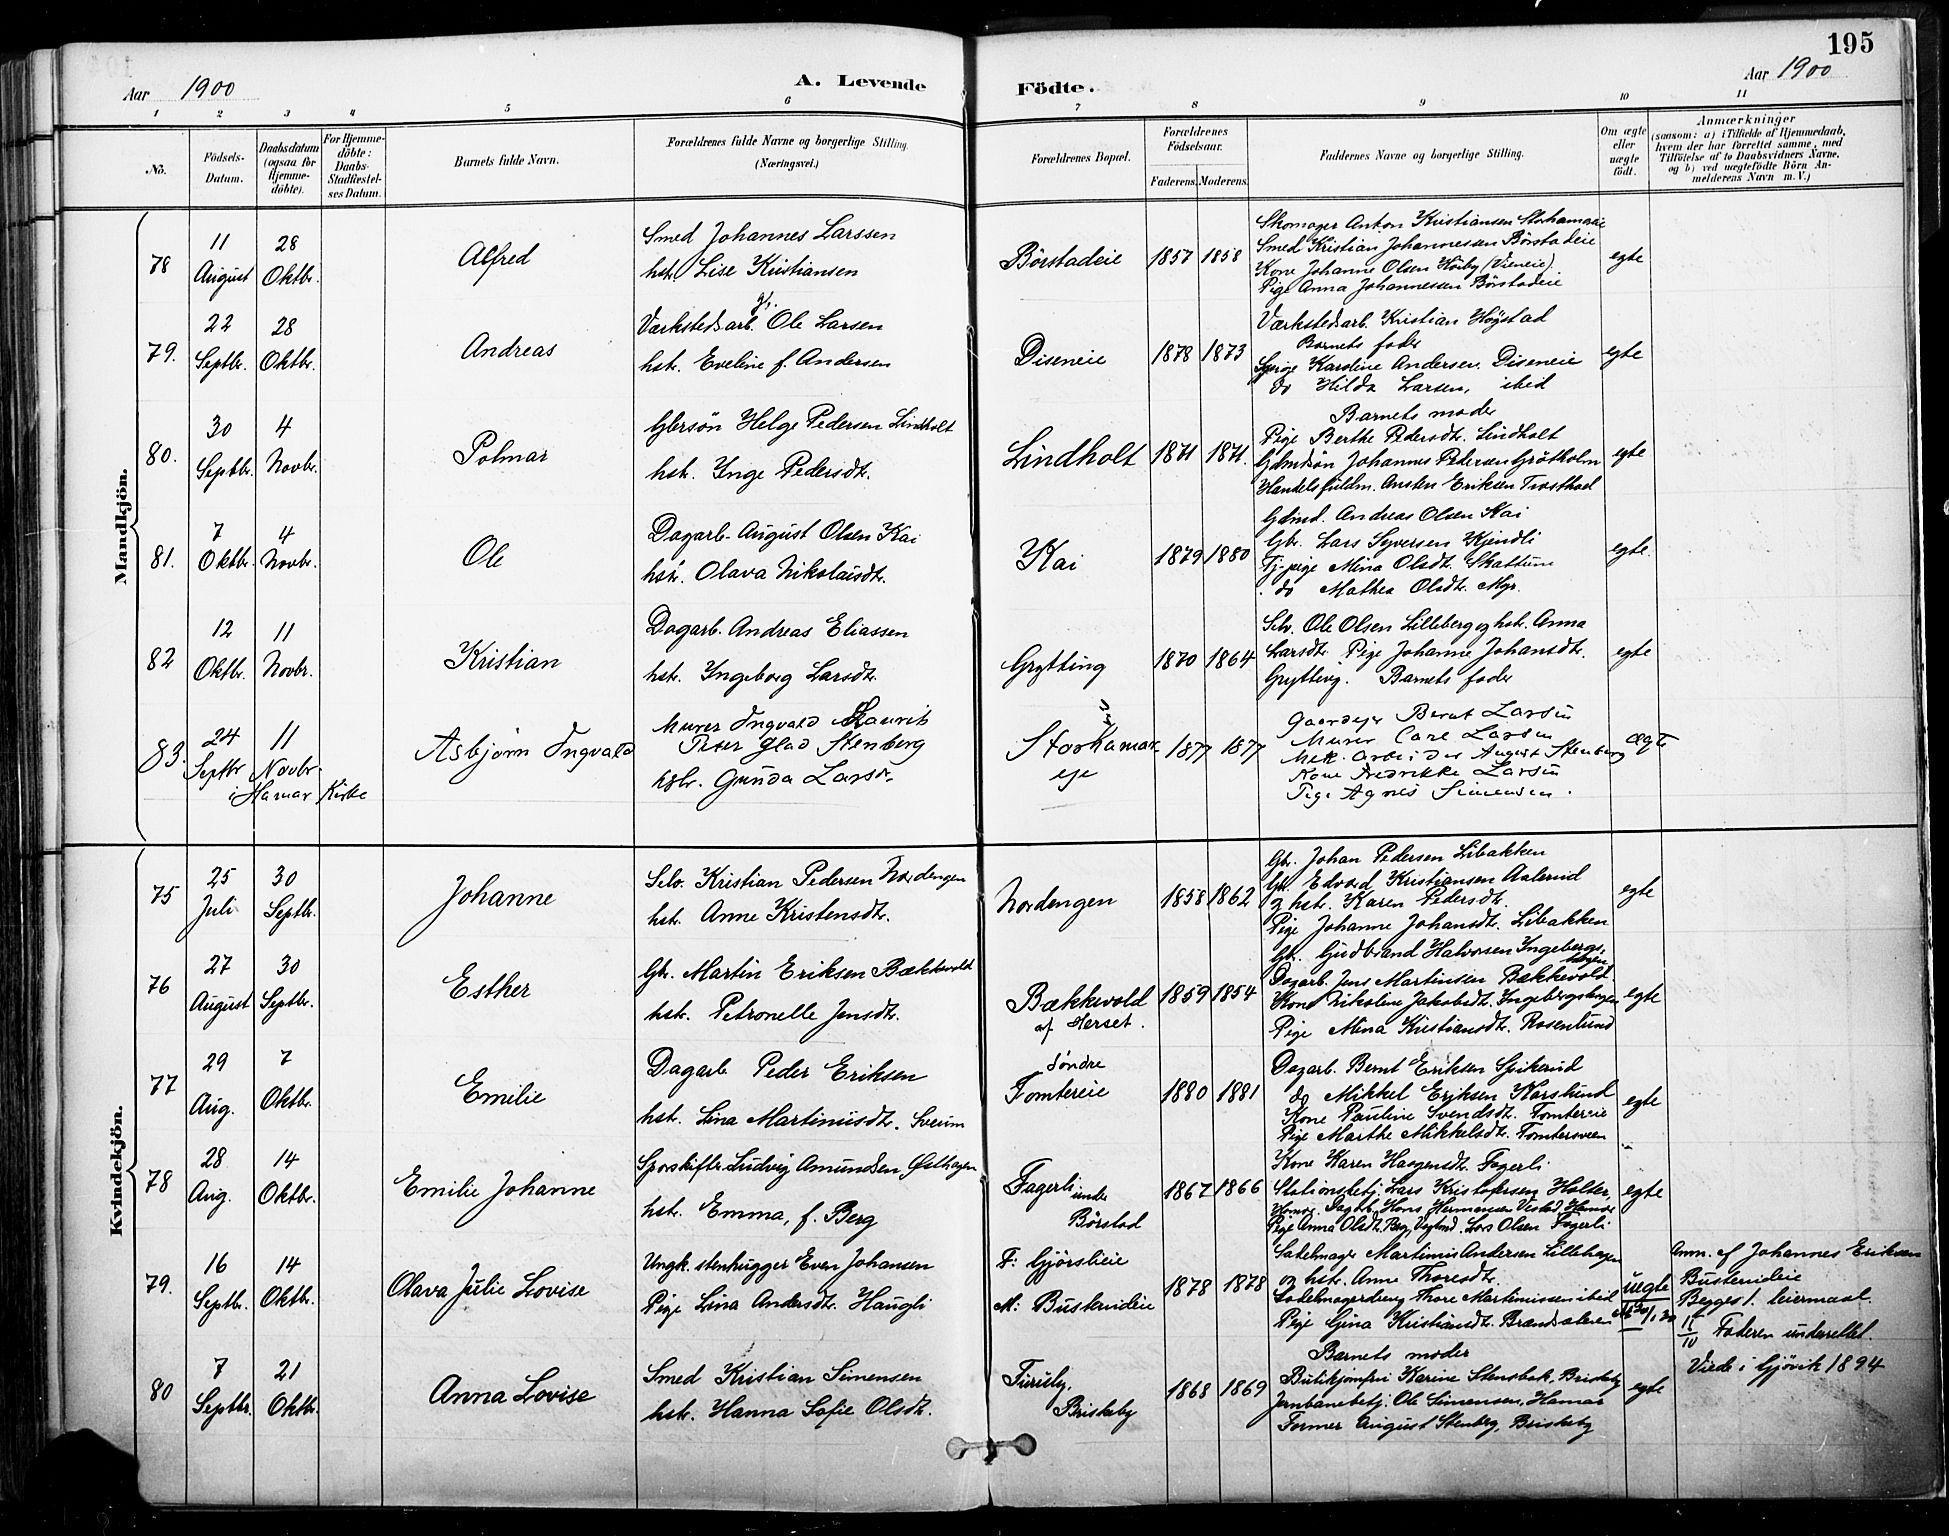 195
Aar 1900
A. Levende
Födte.
Aar 1900
1 2 3 4 5 6 7 8 9 10 11
No.
Födsels-
Datum.
Daabsdatum
(ogsaa for
Hjemme-
döbte).
For Hjemme-
döbte:
Daabs-
Stadfæstel-
ses Datum.
Barnets fulde Navn.
Forældrenes fulde Navne og borgerlige Stilling.
(Næringsvei.)
Forældrenes Bopæl.
Forældrenes
Födselsaar.
Faderens. Moderens.
Faddernes Navne og borgerlige Stilling.
Om ægte
eller
uægte
födt.
Anmærkninger
(saasom: a) i Tilfælde af Hjemmedaab,
hvem der har forrettet samme, med
Tilföielse af to Daabsvidners Navne,
og b) ved uægtefödte Börn An-
melderens Navn m. V.)
Mandkjön.
78
11
August
28
Oktbr.
Alfred
Smed Johannes Larssen
hst. Lise Kristiansen
Börstadeie
1857 1858
Skomager Anton Kristiansen
Smed Kristian Johannesen Börstadeie
Kone Johanne Olsen
Pige Anna Johannesen Börstadeie
egte
79.
22
Septbr.
28
Oktbr.
Andreas
Værkstedsarb. Ole Larsen
hst. Eveline f. Andersen
Diseneie
1878 1873
Værkstedsarb. Kristian Högstad
Barnets fader
Karoline Andersen. Diseneie
do Hilda Larsen, ibid
egte
80.
30
Septbr.
4
Novbr.
Polmar
Gbrsön Helge Pedersen Lindholt
hst. Inge Pedersdt.
Lindholt
1871 1871.
Barnets moder
Pige Berthe Pedersdt. Lindholt
Johannes Pedersen Grötholm
Handelsfuldm. Ansten Eriksen
egte
81.
7
Oktbr.
4
Novbr.
Ole
Dagarb. August Olsen Kai
hst. Olava Nikolaisdt.
Kai
1879 1880
Gdmd. Andreas Olsen Kai
Gbr. Lars Syversen Kjendli
Tj.pige Mina Olsdt. Skattum
do Mathea Olsdt. Myr.
egte
82
12
Oktbr.
11
Novbr.
Kristian
Dagarb. Andreas Eliassen
hst. Ingeborg Larsdt.
Grytting
1870 1864
Selv. Ole Olsen Lilleberg og hst. Anna
Larsdt. Pige Johanne Johansdt.
Grytting. Barnets fader
egte
83.
24
Septbr
11
Novbr.
i Hamar Kirke
Asbjörn Ingvald
Murer Ingvald Laurits
Peter Glad Stenberg
hstr. Gunda Larsd.
Storhamar
eje
1877 1877
Gaardejer Bernt Larsen
Murer Carl Larsen
Mek. Arbeider August Stenberg
Kone Fredrikke Larsen
Pige Agnes Simensen.
ægte
Kvindekjön.
75
25
Juli
30
Septbr.
Johanne
Selv. Kristian Pedersen Nordengen
hst. Anne Kristensdt.
Nordengen
1858 1862
Gbr. Johan Pedersen Libakken
Gbr. Edvard Kristiansen Aalerud
og hst. Karen Pedersdt.
Pige Johanne Johansdt. Libakken
egte
76
27
August
30
Septbr.
Esther
Gbr. Martin Eriksen Bækkevold
hst. Petronelle Jensdt.
Bækkevold
af Herset.
1859 1854
Gbr. Gudbrand Halvorsen Ingebergs-
Dagarb. Jens Martinsen Bækkevold
Kone Nikoline Jakobsdt.
Pige Mina Kristiansdt. Rosenlund
egte
77
29
Aug.
7
Oktbr.
Emilie
Dagarb. Peder Eriksen
hst. Lina Martiniusdt. Sveum
Söndre
Tomtereie
1880 1881
Dagarb. Bernt Eriksen Spikerud
do Mikkel Eriksen Karslund
Kone Pauline Svendsdt. Tomtereie
Pige Marthe Mikkelsdt. Tomtersveen
egte
78
28
Aug.
14
Oktbr.
Emilie Johanne
Sporskifter Ludvig Amundsen Østhagen
hst. Emma, f. Berg
Fagerli under
Börstad
1867 1866
Kone Karen Haagensdt. Fagerli
Stationsbetj. Lars Kristofersen Holter,
Hamar. Dagarb. Hans Hermansen Vestad Hamar
Pige Anna Olsdt. Berg, Lars Olsen Fagerli
egte
79.
16
Septbr.
14
Oktbr.
Olava Julie Lovise
Ungk. stenhugger Even Johansen
Pige Lina Andersdt. Haugli
F: Gjörslieie
M: Busterudeie
1878 1878
Sadelmager Martinius Andersen Lillehagen
og hst. Anne Thoresdt.
Sadelmagerdreng Thore Martiniussen ibid
Pige Gina Kristiansdt. Brændsæteren
uegte
Anm. af Johannes Eriksen
Busterudeie
Begges 1. leiermaal.
15/10 Faderen underrettet.
80
7
Septbr.
21
Oktbr.
Anna Lovise
Smed Kristian Simensen
hst. Hanna Sofie Olsdt.
Furuly,
Briskeby
1868 1869
Barnets moder
Butikjomfru Karine Stensbak, Briskeby
Jernbanebetj. Ole Simensen, Hamar
Former August Stenberg, Briskeby
egte
Viede i Gjövik 1894